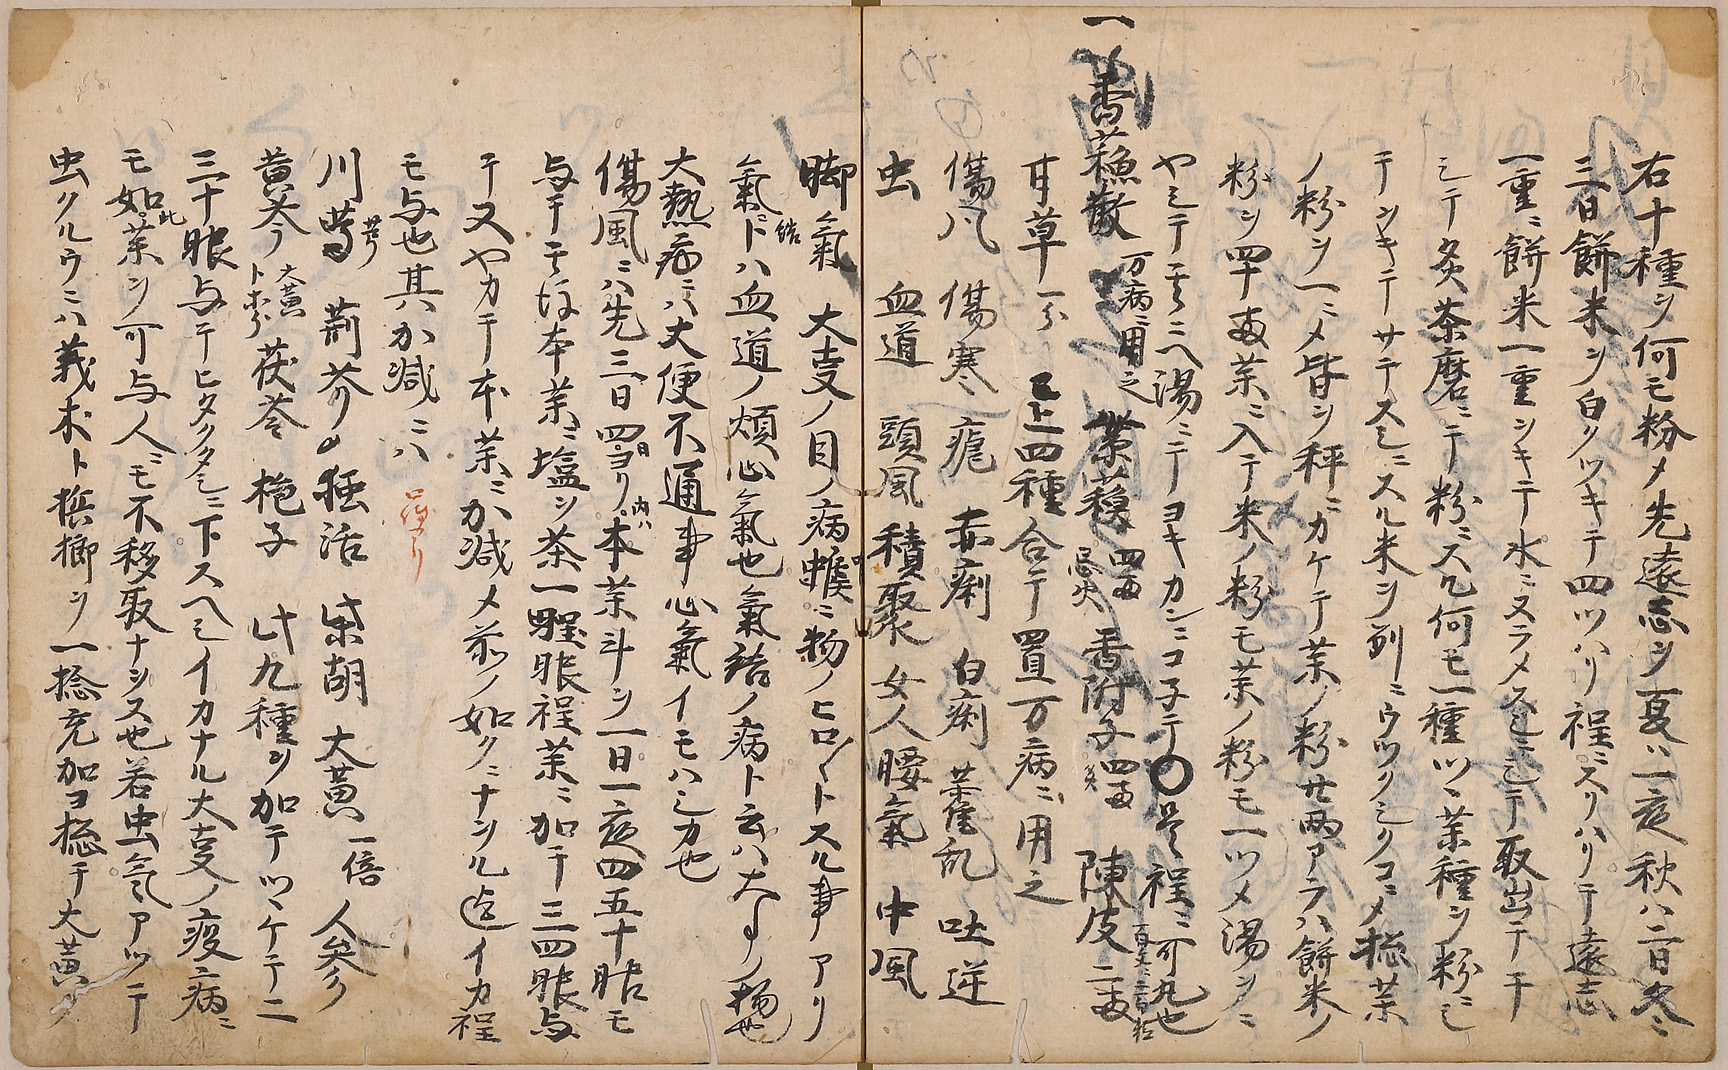 右十種ヲ何モ粉メ先遠志ヲ夏ハ一夜秋ハ二日冬ハ
三日餅米ヲ白クツキテ四ツハリ程ニスリハリテ遠志
一重ニ餅米一重ヲキテ水ニヌラメスヘシ取出テ干
シテ炙茶磨ニテ粉ニス凡何モ一種ツヽ薬種ヲ粉ニシ
テヲキテサテスミニスル米ヲ別ニウツクシクコニメ惣薬
ノ粉ヲ一ニメ皆ヲ秤ニカケテ薬ノ粉廿両アラハ餅米ノ
粉ヲ四十両薬ニ入テ米ノ粉モ薬ノ粉モ一ツメ湯ヲニ
ヤシテ其ニヘ湯ニテヨキカンニコ子テ〇是程ニ可丸也
一香蘓散 万病ニ用之 紫蘓 四両 忌火 香附子 四両 陳皮 二両
甘草 一分 已上四種合テ置万病ニ用之
傷風 傷寒 瘧 赤痢 白痢 霍乱 吐逆
虫 血道 頭風 積聚 女人腰氣 中風
脚氣 大麦ノ目ノ病喉ニ物ノヒロ〳〵トスル事アリ
氣結ニトハ血道ノ煩心氣也氣結ノ病ト云ハ大事ノ物也
大熱病ニハ大便不通事心氣イモハシカ也
傷風ニハ先三日四日ヨリ内ハ本薬斗ヲ一日一夜四五十服モ
与テモ其後本薬ニ塩ヲ茶一服程薬ニ加テ三四服与
テ又ヤカテ本薬ニカ減メ前ノ如クニナシル迄イカ程
モ与也其カ減ニハ
川芎 荊芥 独活 柴胡 大黄 一倍 人参
黄芩 大黄トホソ 茯苓 梔子 此九種ヲ加テツヽケテ二
三十服与テヒタクタシニ下スヘシイカナル大麦ノ疫病ニ
モ如此薬ヲ可与人ニモ不移取ナシス也若虫氣アツテ
虫クルウニハ莪朮ト梹榔ヲ一捻充加ヨ惣テ大黄ヲ